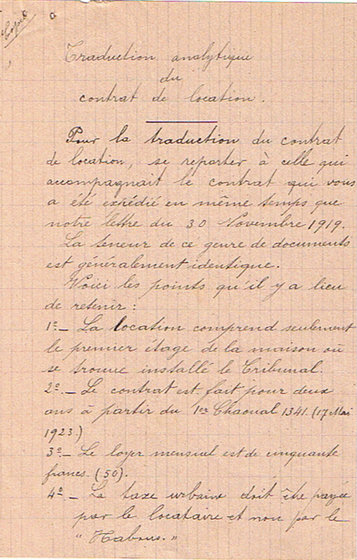 Copie
Traduction analytique
du
contrat de location.
Pour la traduction du contrat
de location, se reporter à celle qui
accompagnait le contrat qui vous
a été expédié en même temps que
notre lettre du 30 Novembre 1919.
La teneur de ce genre de documents
est généralement identique.
Voici les points qu'il y a lieu
de retenir :
1º_ La location comprend seulement
le premier étage de la maison où
se trouve installé le Tribunal.
2º_ Le contrat est fait pour deux
ans à partir du 1er Chaoual 1341. (17 Mai
1923)
3º_ Le loyer mensuel est de cinquante
francs. (50).
4º_ La taxe urbaine doit être payée
par le locataire et non par le
"Habous."